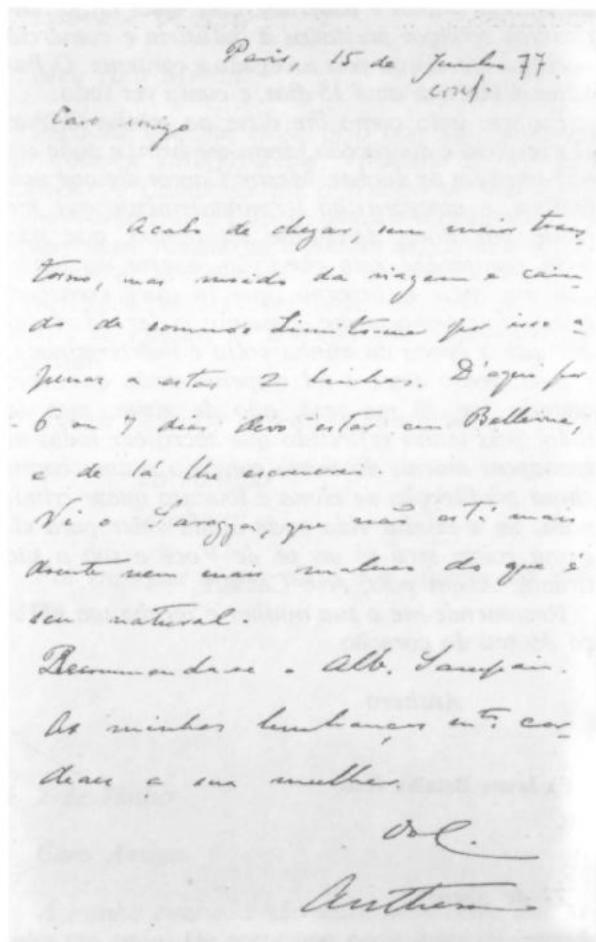 Paris, 15 de Junho 77.
Caro Amigo
Acabo de chegar, sem maior trans-
torno, mas moido da viagem e cain-
do de somno. Limito-me por isso a-
penas a estas 2 linhas. D'aqui por
6 ou 7 dias, devo estar em Bellevue,
e de lá lhe escreverei.
V. o Lo que não está mais
doente nem mais maluco do que é
seu natural.
Recommende-me a Alb. Sampaio.
As minhas lembranças mto cor-
deaes a sua mulher.
do C.
Anthero